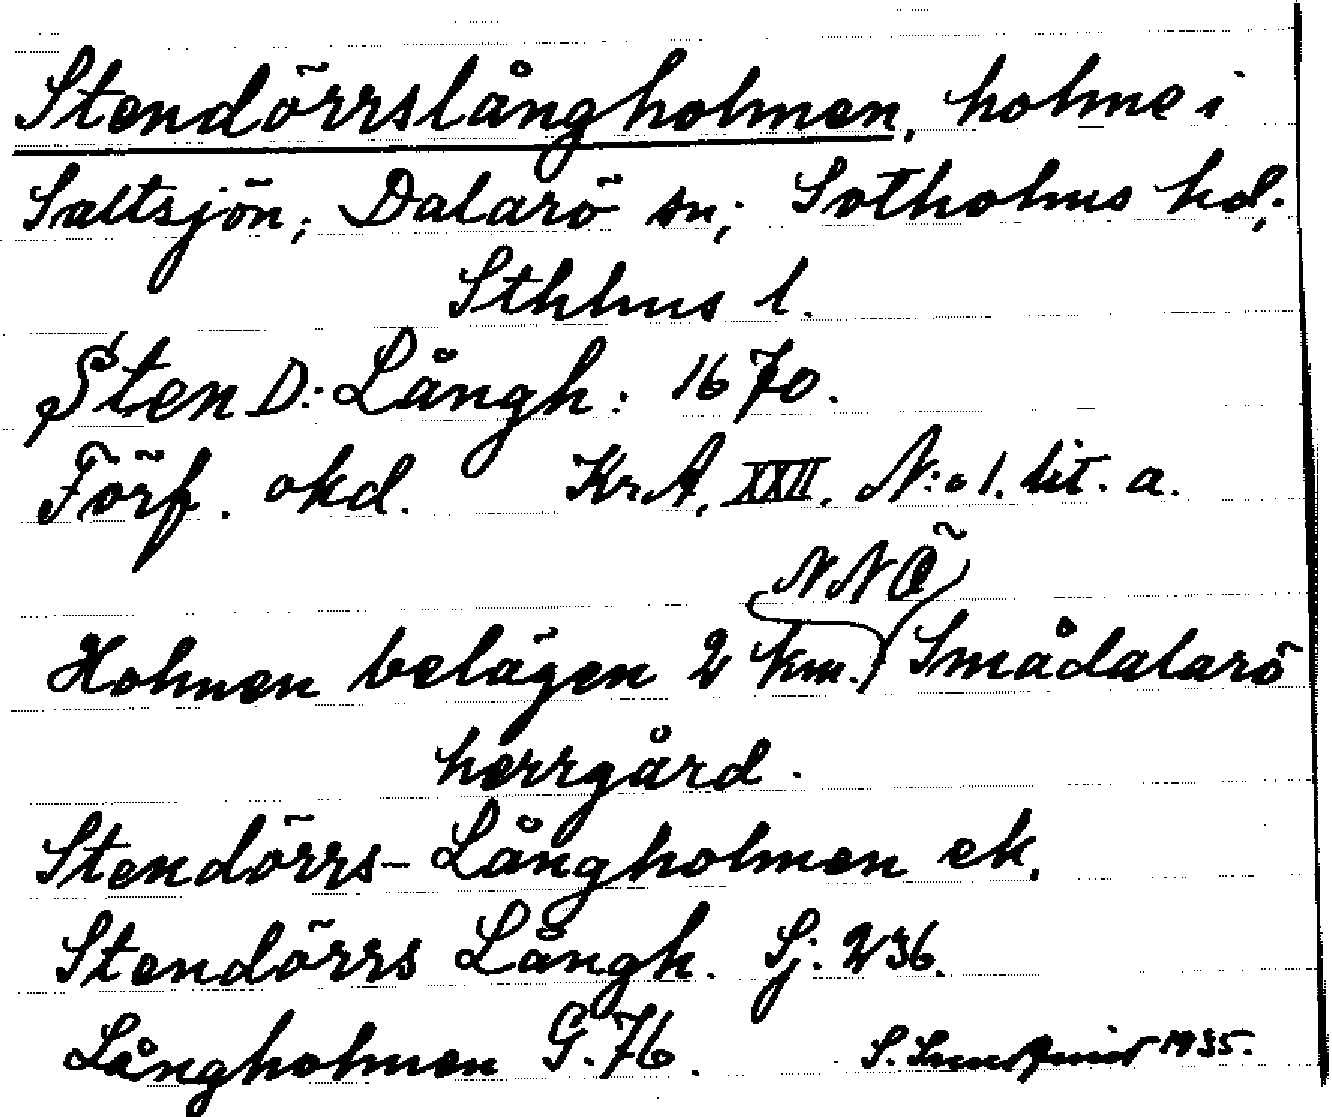 Stendörrslångholmen, holme i
Saltsjön; Dalarö sn; Sotholms hd;
Sthlms l.
Sten D: Långh: 1670.
Förf. okd. Kr.A. XXII. N:o 1. lit. a.
NNÖ
Holmen belägen 2 km. Smådalarö
herrgård.
Stendörrs-Långholmen ek.
Stendörrs Långh. Sj: 236.
Långholmen G. 76. S. 1935.